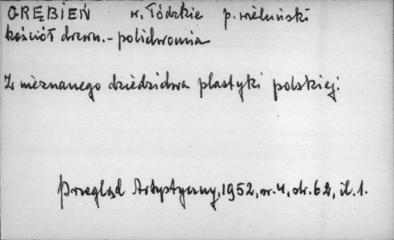 GRĘBIEŃ w. Łódzkie p. wieluński
kościół drewn. - polichromia
Z nieznanego dziedzictwa plastyki polskiej.
Przegląd Artystyczny, 1952, nr. 4, str. 62, il. 1.